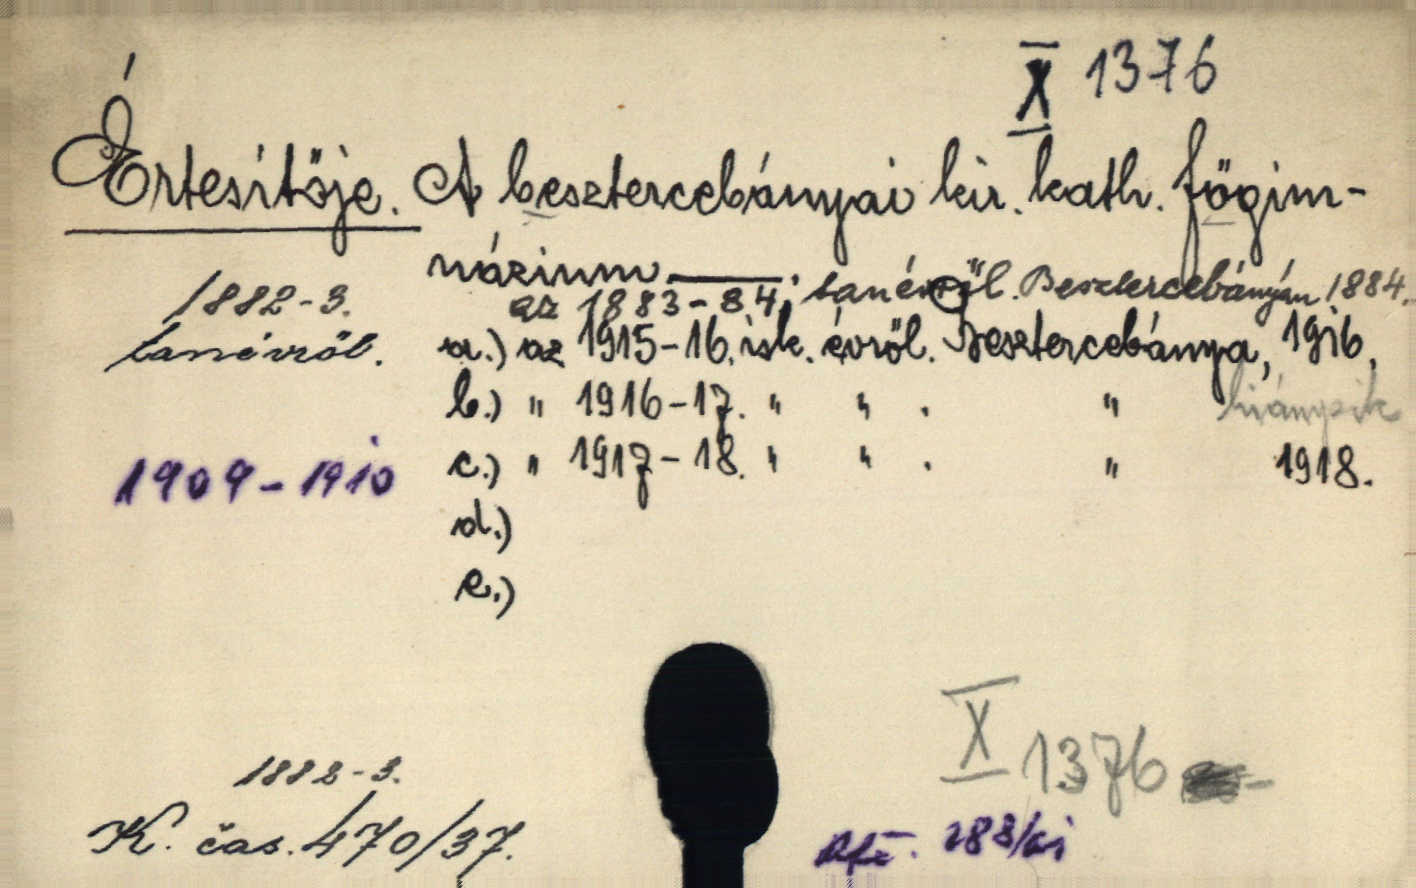 X 1376
Értesítője. A besztercebányai kir. kath. főgim-
názium ———.
az 1883-84. tanévről. Besztercebányán 1884.
1882-3.
tanévről.
a.) az 1915-16. isk. évről. Besztercebánya, 1916.
b.) " 1916-17. " " . " hiányzik
c.) " 1917-18. " " . " 1918.
1909-1910
d.)
e.)
X 1376
1882-3.
K. čas. 470/37.